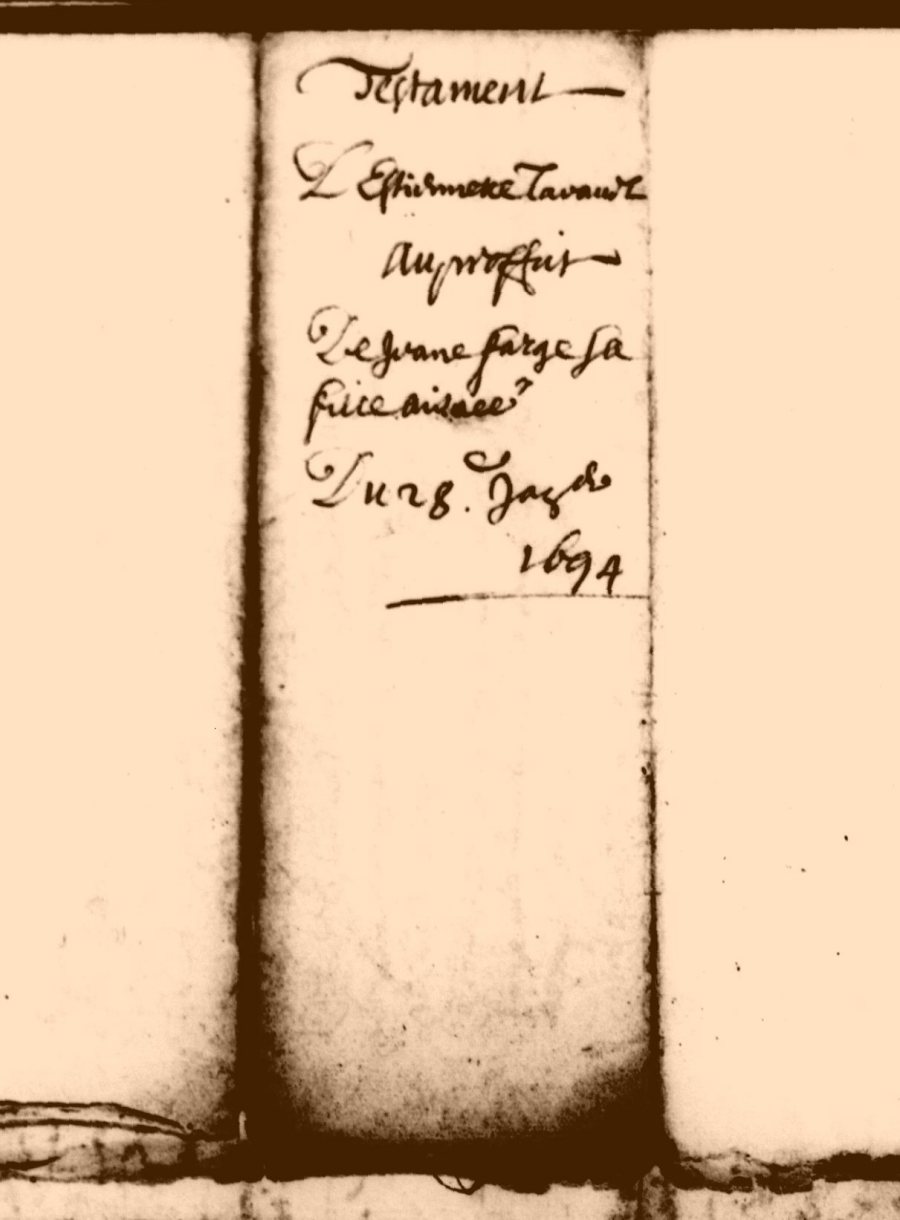 Testament
D Estiennette Tavaud
Au proffit
De Jeane farge sa
fille aisnee
Du 28. Jan
1694